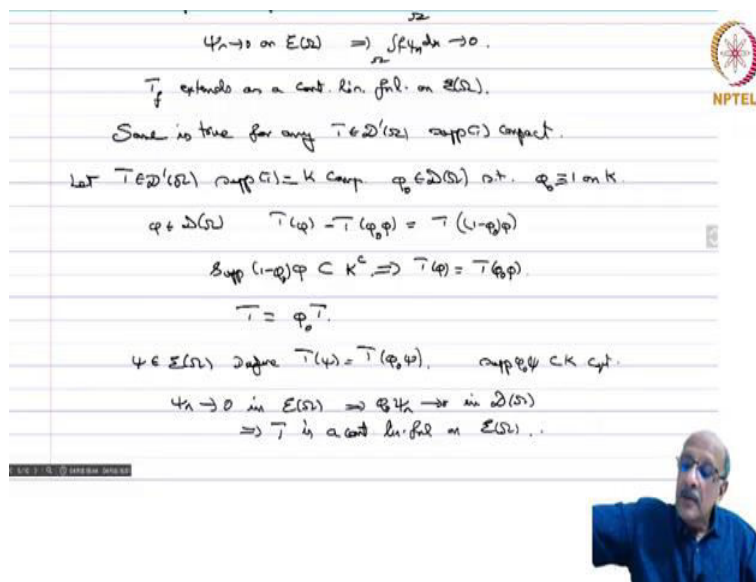 Ω
ψₙ→0 on ℰ(Ω) ⇒ ∫fψₙdx →0.
Ω
T_f extends as a cont. lin. fnl. on ℰ(Ω).
NPTEL
Same is true for any T∈𝒟'(Ω) supp(T) compact.
Let T∈𝒟'(Ω) supp(T)=K comp. φ₀∈𝒟(Ω) s.t. φ₀≡1 on K.
φ∈𝒟(Ω) T(φ)-T(φ₀φ) = T((1-φ₀)φ)
Supp (1-φ₀)φ ⊂ Kᶜ ⇒ T(φ) = T(φ₀φ).
T = φ₀T.
ψ∈ℰ(Ω) Define T(ψ)=T(φ₀ψ). supp φ₀ψ ⊂K cpt.
ψₙ→0 in ℰ(Ω) ⇒ φ₀ψₙ→0 in 𝒟(Ω)
⇒ T is a cont lin. fnl on ℰ(Ω).